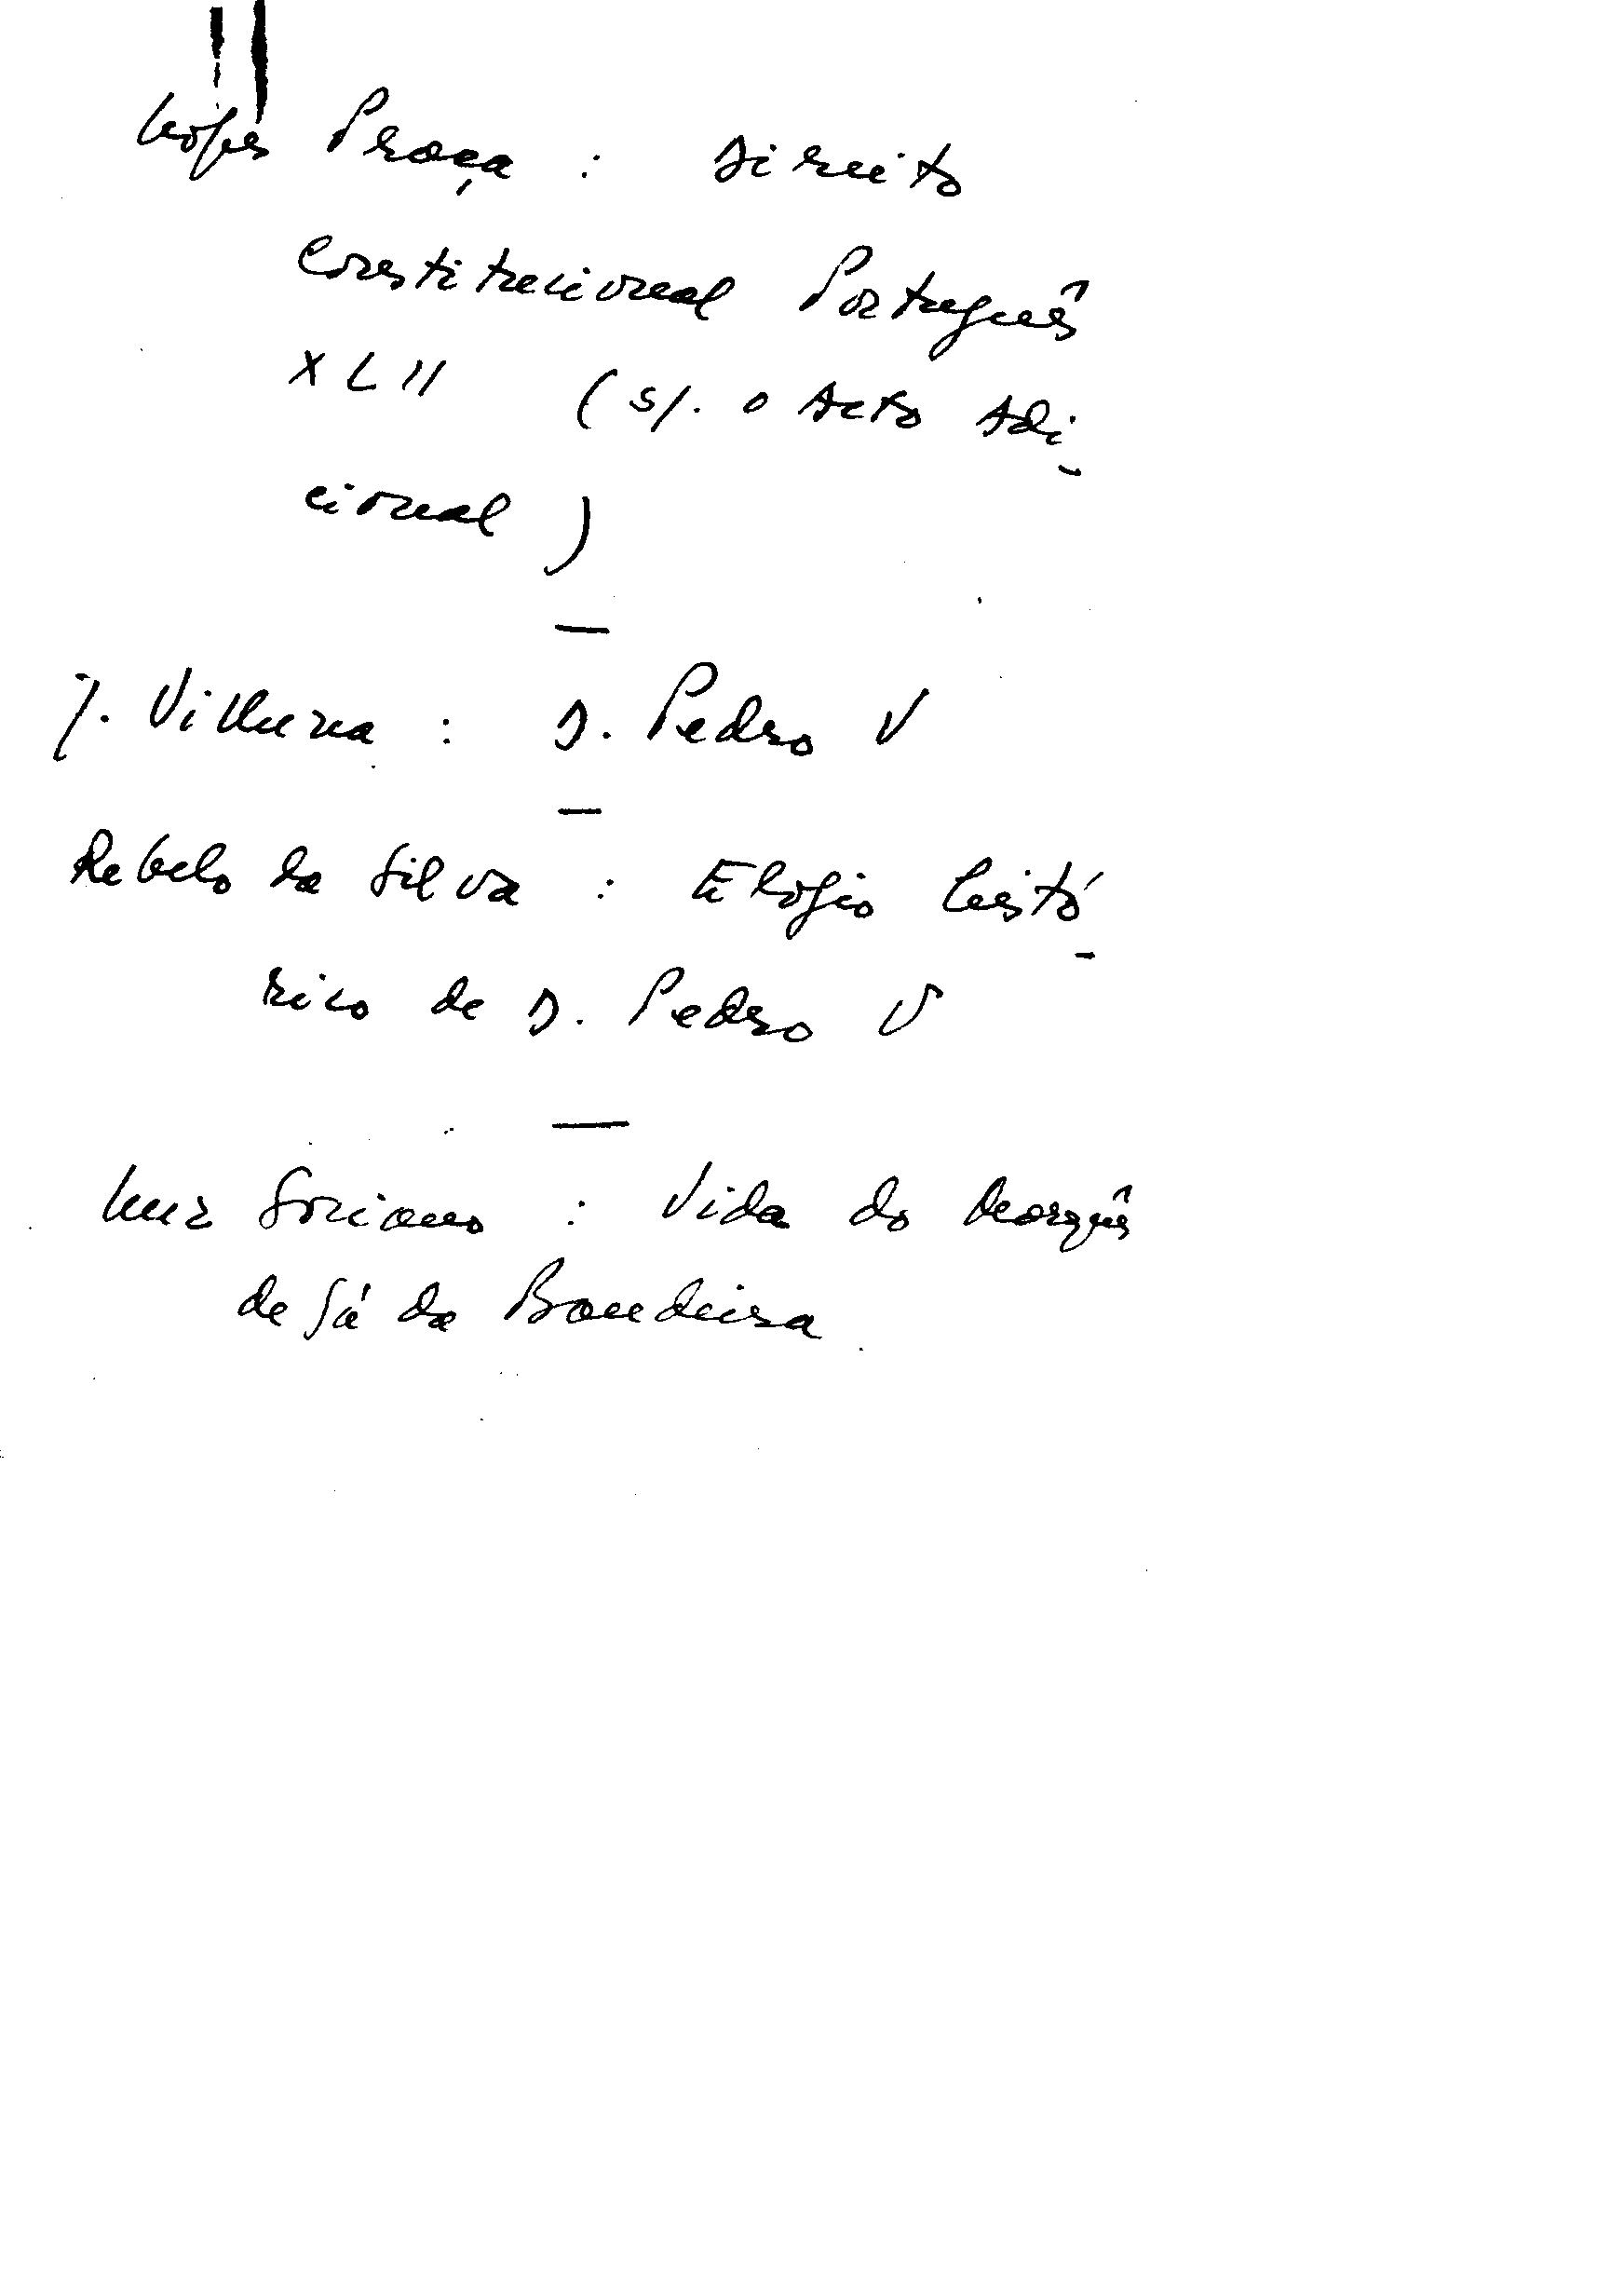 Lopes Praça : Direito
Constitucional Português
XLII (s/. o Acto Adi-
cional)
—
J. Vilhena : D. Pedro V
—
Rebelo da Silva : Elogio histó-
rico de D. Pedro V
—
Luz Soriano : Vida do Marquês
de Sá da Bandeira